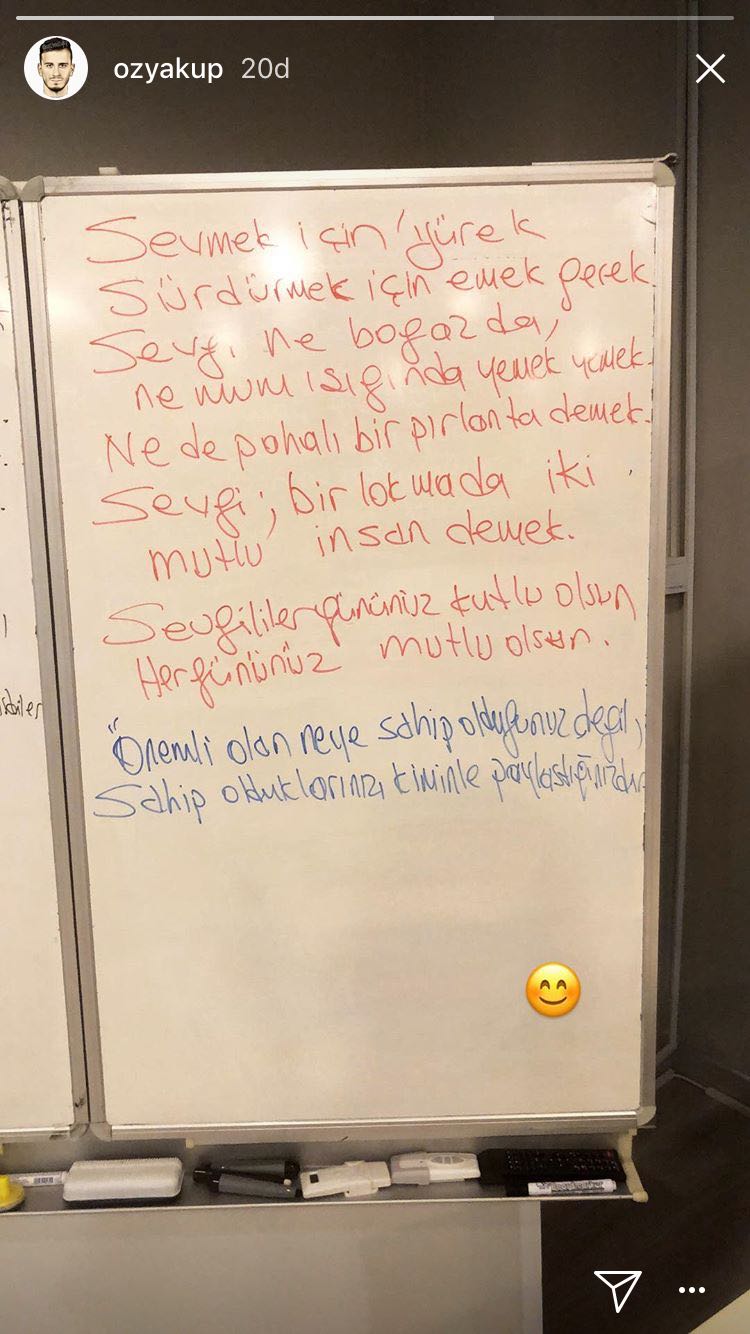 ozyakup 20d
Sevmek için yürek
Sürdürmek için emek gerek.
Sevgi ne bogazda,
ne mum ısıgında yemek yemek.
Ne de pahalı bir pırlanta demek.
Sevgi; bir lokmada iki
mutlu insan demek.
Sevgililer gününüz kutlu olsun
Her gününüz mutlu olsun.
"Önemli olan neye sahip olduğunuz degil,
Sahip olduklarınızı kiminle paylastığınızdır.